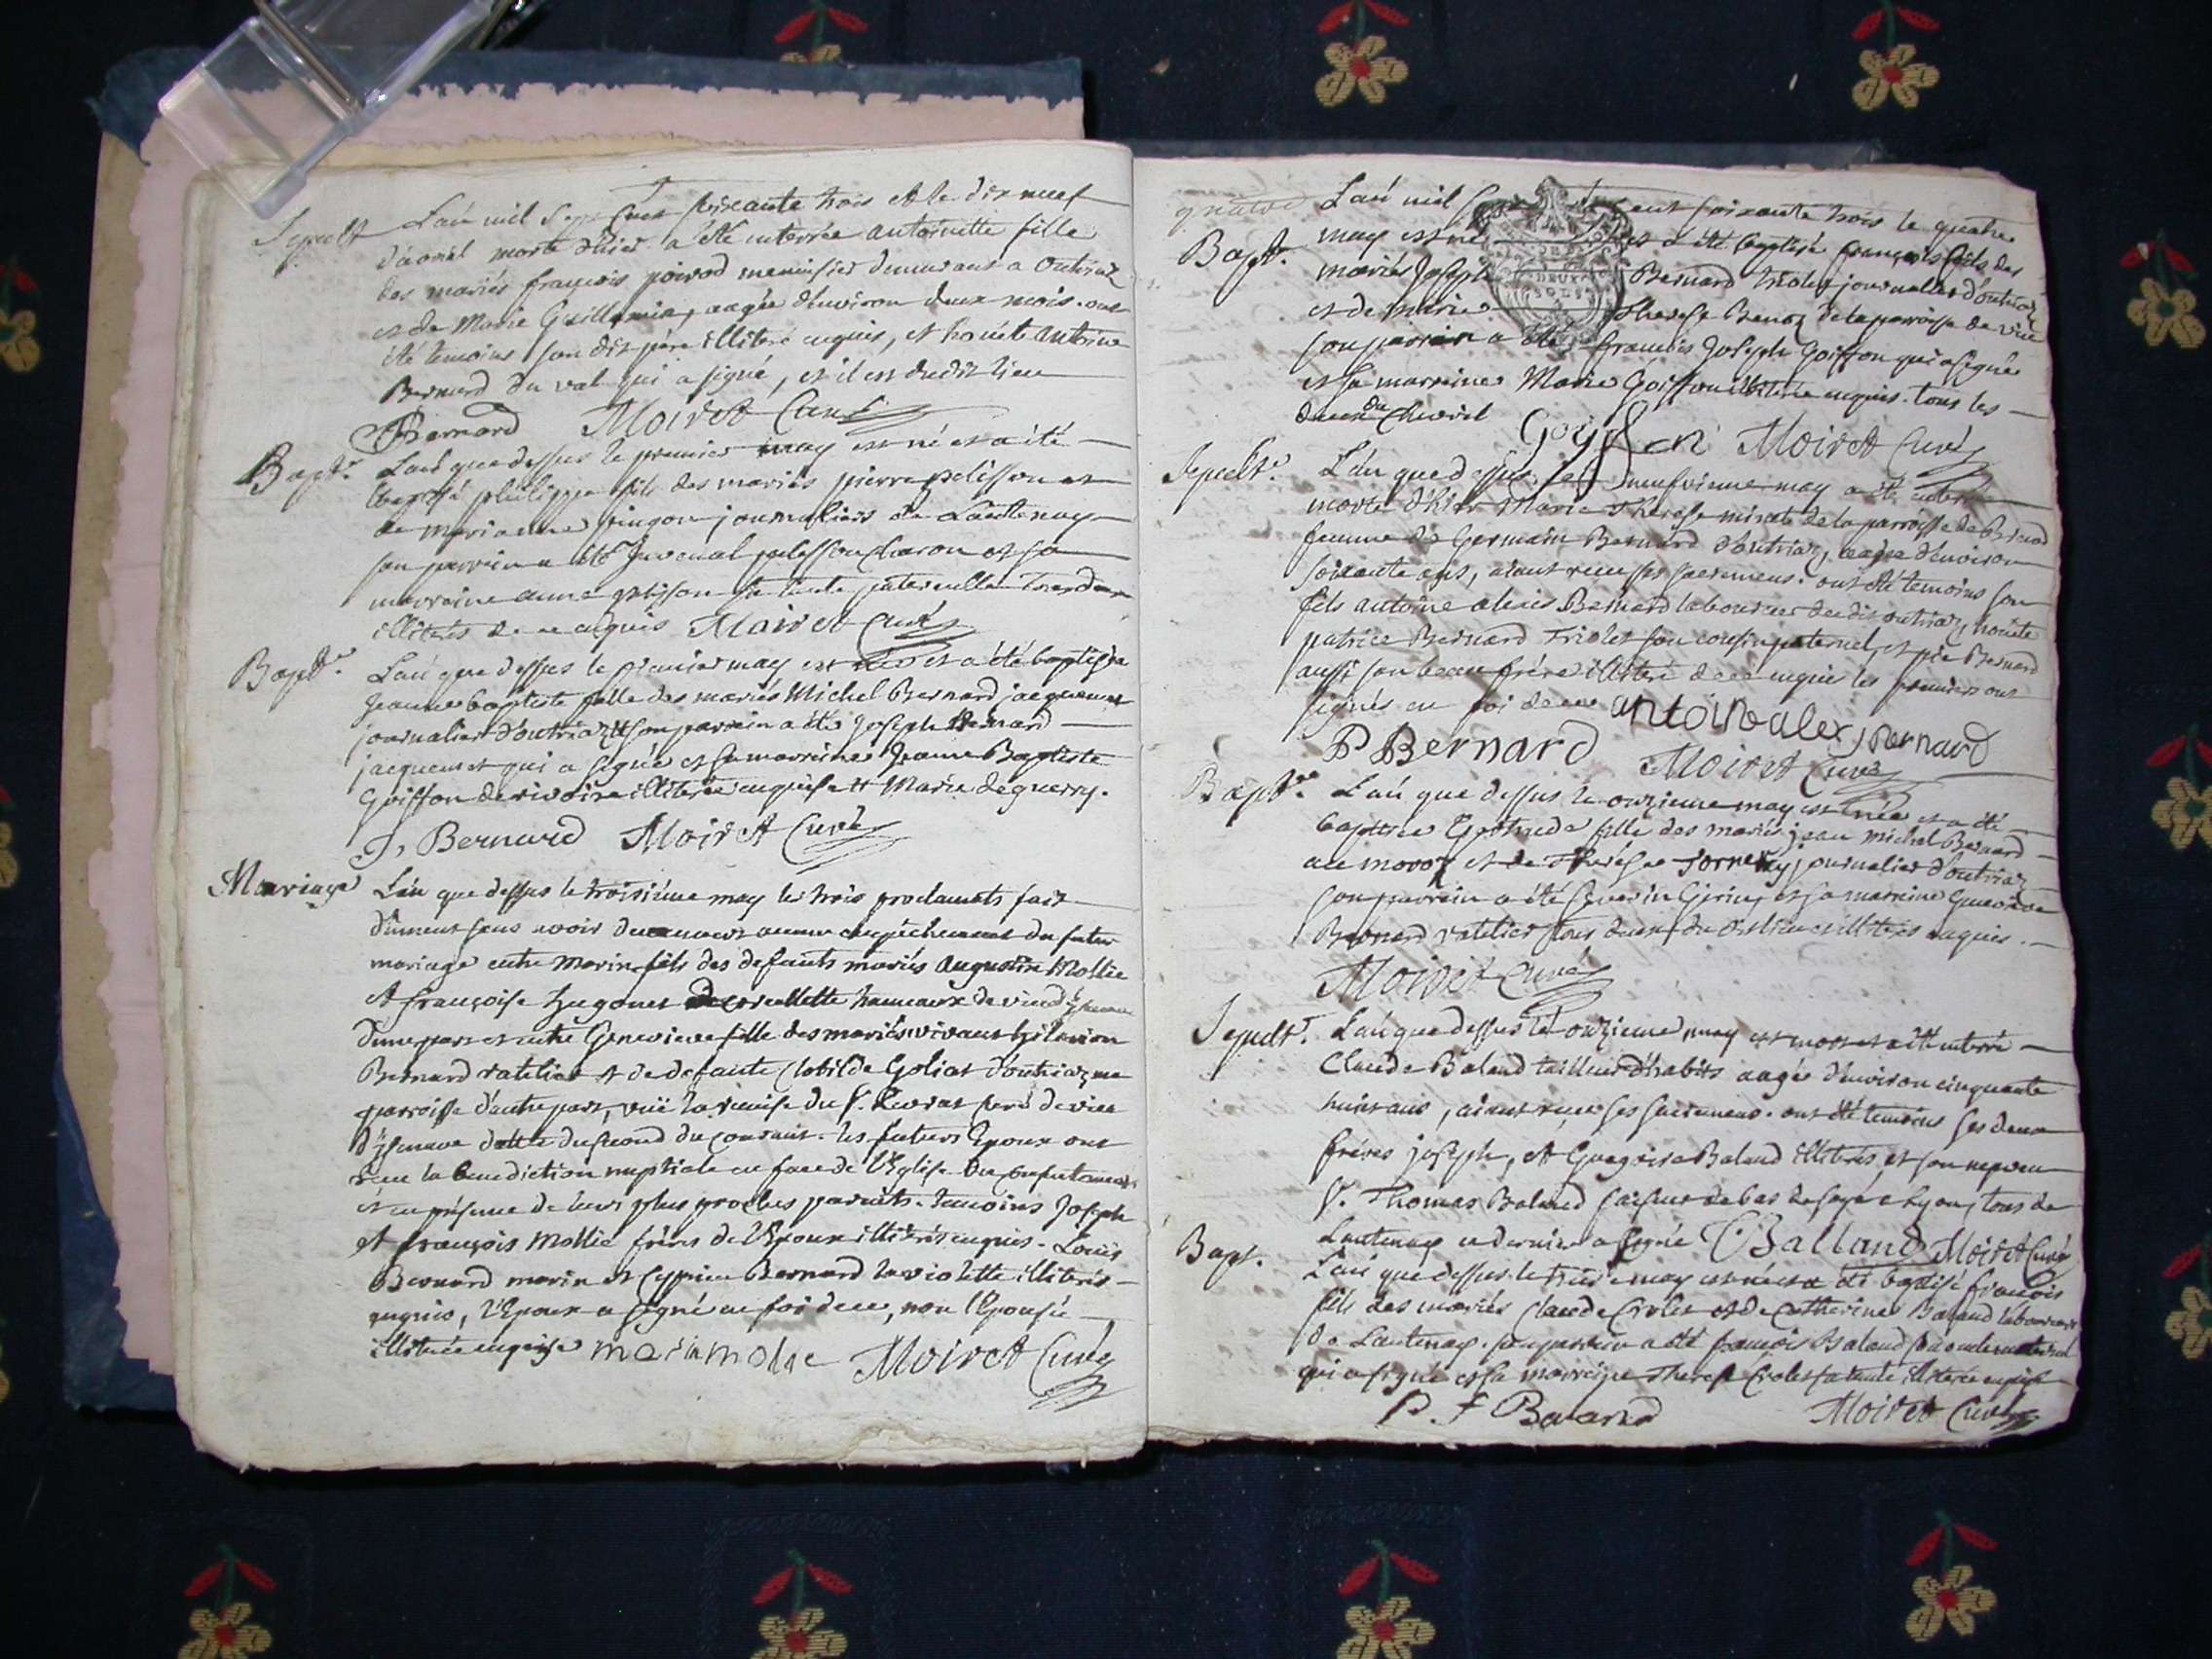 Sepult L'an mil sept cent soixante trois et le dix neuf
d'avril morte d'hier a été enterrée antoinette fille
des mariés françois poirod menuisier demeurant a Outriaz
et de Marie Guillermin, aagée d'environ deux mois. ont
été temoins son dit père illiteré enquis, et honéte antoine
Bernard du val qui a signé, et il est dudit lieu
Bernard Moiret Curé
Bapt.e L'an que dessus le premier may est né et a été
baptisé philippe fils des mariés pierre pelisson et
de marianne pingon journaliers de Lantenay
son parrain a été Juvenal pelisson charon et sa
marraine anne pelisson sa tante paternelle
illiterés de ce enquis Moiret Curé
Bapt.e L'an que dessus le premier may est née et a été baptisée
Jeanne baptiste fille des mariés Michel Bernard jacquemet
journalier d'outriaz son parrain a été Joseph Bernard
jacquemet qui a signé et sa marraine Jeanne Baptiste
Goiffon de rivoire illiterée enquise # Marie deguerry.
J, Bernard Moiret Curé
Mariage L'an que dessus le troisiéme may les trois proclamats fait
dument sans avoir decouvert aucun empéchement du futur
mariage entre Marin fils des defunts mariés augustin Mollie
et françoise hugonet hameaux de vieud'
d'une part et entre Genevieve fille des mariés vivant hilarion
Bernard ratelier et de defunte Clotilde Goliat d'outriaz ma
parroisse d'autre part, vüe la remise du S. curé de vieu
d'yzenave dattée du second du courant. les futurs Epoux ont
reçu la benediction nuptiale en face de l'Eglise
et en présence de leurs plus proches parents. temoins Joseph
et françois Mollie fréres de l'Epoux illiterés enquis. Louis
Bernard marin et Cyprien Bernard la violette illiterés
enquis, l'Epoux a signé en foi de ce, non l'Epousée
illiterée enquise marin molie Moiret Curé
quatre L'an mil sept cent soixante trois le quatre
Bapt. may est né et a été baptisé françois fils des
mariés Joseph Bernard triolet journalier d'outriaz
et de marie Therese Benoz de la parroisse de vieu
son parrain a été françois Joseph Goiffon qui a signé
et sa marraine Marie Goiffon illiterée enquise. tous les
deux du Chevril Goiffon Moiret Curé
Sepult.e L'an que dessus le neufvieme may a été enterrée
morte d'hier Marie Therese de la parroisse de
femme de Germain Bernard d'outriaz, aagée d'environ
soixante ans, aiant reçu ses sacremens. ont été temoins son
fils antoine alexis Bernard laboureur dudit outriaz, honéte
patrice Bernard Triolet son cousin paternel, et pie Bernard
aussi son beau frére illiteré de ce enquis les premiers ont
signés en foi de ce antoine alex, bernard
P Bernard Moiret Curé
Bapt.e L'an que dessus le onzieme may est née et a été
baptisée Gertrude fille des mariés jean michel Bernard
et de Therése journalier d'outriaz
son parrain a été Severin Girin, et sa marraine
Bernard ratelier tous deux du dit lieu illiterés enquis.
Moiret Curé
Sepult. L'an que dessus le onzieme may est mort et a été enterré
Claude Baland tailleur d'habits aagé d'environ cinquante
huit ans, aiant reçu ses sacremens. ont été temoins ses deux
fréres joseph, et Gregoire Baland illiterés, et son neveu
S. Thomas Baland faiseur de bas de soye a Lyon, tous de
Lantenay ce dernier a signé TBalland Moiret Curé
Bapt. L'an que dessus le may est né et a été baptisé françois
fils des mariés Claude Crolet et de Catherine Baland laboureurs
de Lantenay. son parrain a été françois Baland
qui a signé et sa marraine Therese Crolet sa tante illiterée enquise
P. f Baland Moiret Curé